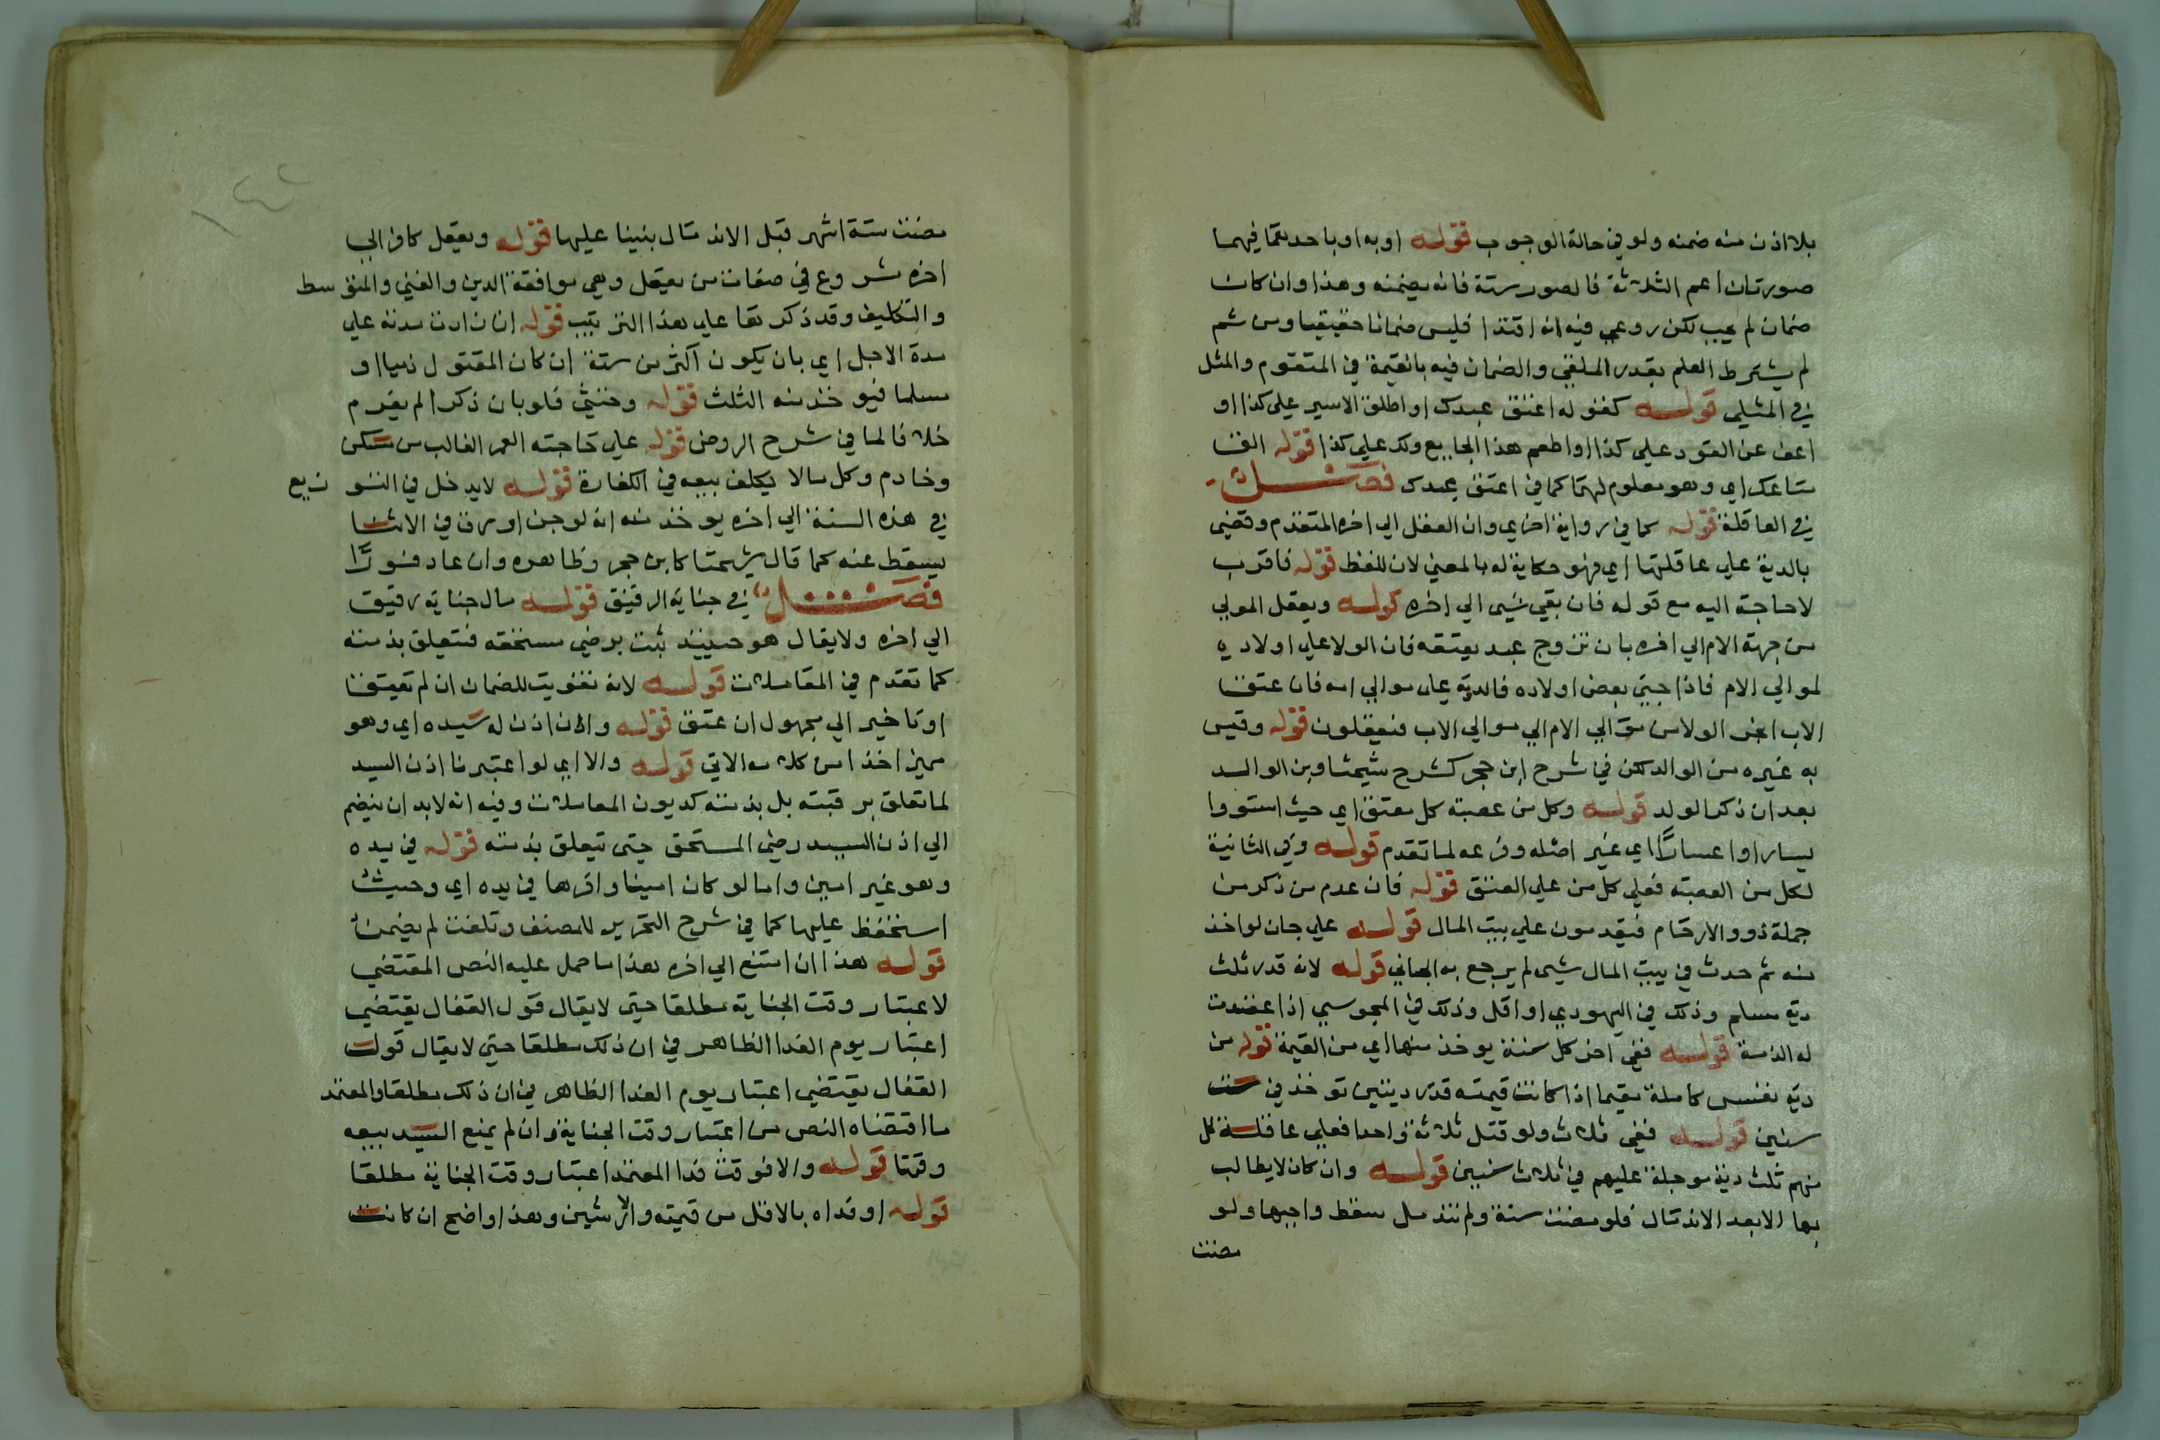 بلا اذن منه ضمنه ولو في حالة الوجوب قوله او به او باحدهما فيهما
صورتان اعم الثلاثة فالصور ستة فانه يضمنه وهذا وان كان
ضمان لم يجب لكن روعي فيه انه افتدا فليس ضمانا حقيقيا ومن ثم
لم يشترط العلم بقدر الملقي والضمان فيه بالقيمة في المتقوم والمثل
في المثلي قوله كقوله اعتق عبدك او اطلق الاسير علي كذا او
اعف عن القود علي كذا او اطعم هذا الجايع ولك علي كذا قوله الق
متاعك اي وهو معلوم لهما كما في اعتق عبدك فصل
في العاقلة قوله كما في رواية اخري وان العقل الي اخره المتقدم وقضي
بالدية علي عاقلتها اي فهو حكاية له بالمعني لان للفظ قوله فاقرب
لا حاجة اليه مع قوله فان بقي شي الي اخره قوله ويعقل الموالي
من جهة الام الي اخره بان تزوج عبد بعتقه فان الولا علي اولاده
لموالي الام فاذا جني بعض اولاده فالدية علي موالي امه فان عتق
الاب انجر الولا من موالي الام الي موالي الاب فيعقلون قوله وقيس
به غيره من الوالد لكن في شرح ابن حجر كشرح شيخنا وبن الوالد
بعد ان ذكر الولد قوله وكل من عصبة كل معتق اي حيث استووا
يسارا او اعسارًا اي غير اصله وفرعه لما تقدم قوله وفي الثانية
لكل من العصبة فعلي كل من علي العتق قوله فان عدم من ذكر من
جملة ذوو الارحام فيقدمون علي بيت المال قوله علي جان لو اخذ
منه ثم حدث في بيت المال شي لم يرجع به الجاني قوله لانه قدر ثلث
دية مسلم وذلك في اليهودي او اقل وذلك في المجوسي اذا عقدت
له الذمة قوله ففي اخر كل سنة يوخذ منها اي من القيمة قوله من
دية نفس كاملة بقيما اذا كانت قيمته قدر ديتين توخذ في ست
سنين قوله ففي ثلاث ولو قتل ثلاثة واحدا فعلي عاقلة كل
منهم ثلث دية موجلة عليهم في ثلاث سنين قوله وان كان لا يطالب
بها الا بعد الاندمال فلو مضت سنة ولم تندمل سقط واجبها ولو
مضت
مضت ستة اشهر قبل الاندمال بنينا عليها قوله ويعقل كافر الي
اخره شروع في صفات من يعقل وهي موافقة الدين والغني والمتوسط
والتكليف وقد ذكرها علي هذا الترتيب قوله ان زادت مدته علي
مدة الاجل اي بان يكون اكثر من ستة ان كان المقتول ذميا او
مسلما فيوخذ منه الثلث قوله وخنثي فلو بان ذكرا لم يغرم
خلافا لما في شرح الروض قوله علي حاجته العمر الغالب من مسكن
وخادم وكل ما لا يكلف ببيعه في الكفارة قوله لا يدخل في التوزيع
في هذه السنة الي اخره يوخذ منه انه لو جن او رق في الاثنا
يسقط عنه كما قال شيخنا كابن حجر وظاهره وان عاد فورًا
فصل في جناية الرقيق قوله مال جناية رقيق
الي اخره ولا يقال هو حينيذ ثبت برضي مستحقه فيتعلق بذمته
كما تقدم في المعاملات قوله لانه تفويت للضمان ان لم تعتق
او تاخير الي مجهول ان عتق قوله والا ان اذن له سيده اي وهو
مميز اخذا من كلامه الاتي قوله والا اي لو اعتبرنا اذن السيد
لما تعلق برقبته بل بذمته كديون المعاملات وفيه انه لا بد ان ينضم
الي اذن السيد رضي المستحق حتي يتعلق بذمته قوله في يده
وهو غير امين واما لو كان امينا واقرها في يده اي وحيث
استحفظ عليها كما في شرح التحرير للمصنف وتلفت لم يضمن
قوله هذا ان امتنع الي اخره هذا ما حمل عليه النص المقتضي
لاعتبار وقت الجناية مطلقا حتي لا يقال قول القفال يقتضي
اعتبار يوم الفدا الظاهر في ان ذلك مطلقا حتي لا يقال قول
القفال يقتضي اعتبار يوم الفدا الظاهر في ان ذلك مطلقا والمعتمد
ما اقتضاه النص من اعتبار وقت الجناية وان لم يمنع السيد بيعه
وقتا قوله والا فوقت فدا المعتمد اعتبار وقت الجناية مطلقا
قوله او فداه بالاقل من قيمته والارشين وهذا واضح ان كانت